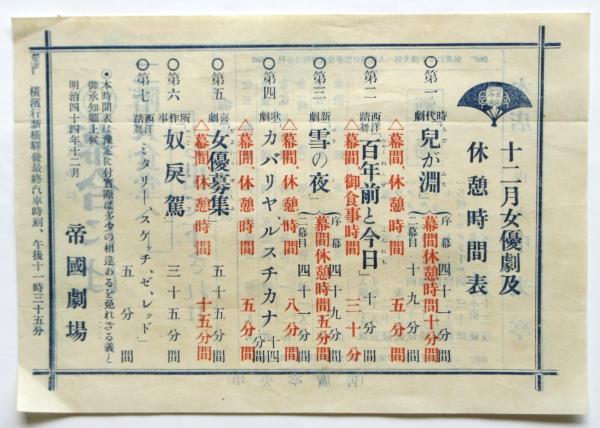 十二月女優劇及
休憩時間表
〇第一 時代劇 兒が淵」
序幕 四十一分間
幕間休憩時間十分間
二幕目 十九分間
△幕間、休憩時間 五分間
〇第二 西洋舞踏 百年前と今日」 十分間
△幕間、御食事時間 三十分
〇第三 新劇 雪の夜」
序幕 四十九分間
幕間休憩時間五分間
二幕目 四十一分間
△幕間、休憩時間 八分間
〇第四 歌劇 カバリヤ、ルスチカナ」 十四分間
△幕間、休憩時間 五分間
〇第五 喜劇 女優募集」 五十五分間
△幕間、休憩時間 十五分間
〇第六 所作事 奴戻駕 三十五分間
〇第七 西洋舞踏 ミタリー、スケッチ、ゼ、レッド」
五分間
●本時間表は豫定に付實際は多少の相違あるを免れざる義と
御承知願上候
明治四十四年十二月
帝國劇場
横濱行新橋驛發最終汽車時刻、午後十一時三十五分